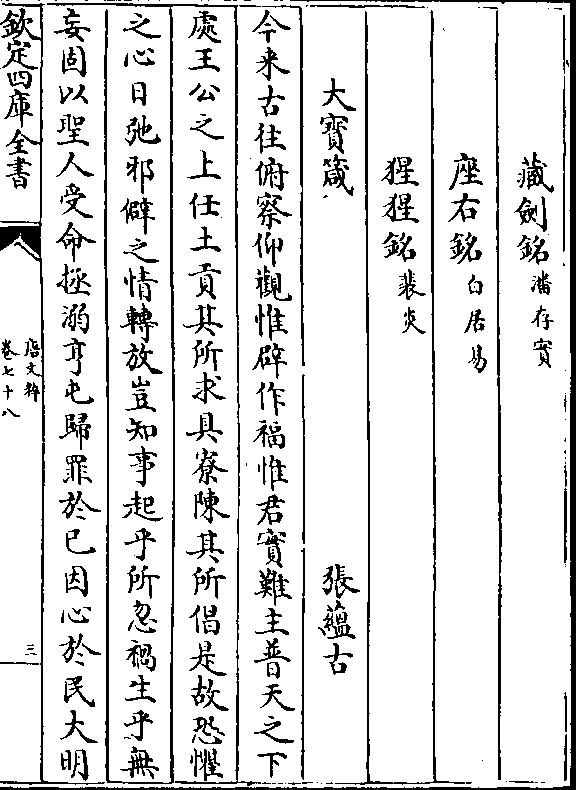 藏劍銘潘存實
座右銘白居易
猩猩銘裴炎
大寶箴 張蘊古
今来古往俯察仰觀惟辟作福惟君實難主普天之下
處王公之上任土貢其所求具寮陳其所倡是故恐懼
之心日弛邪僻之情轉放豈知事起乎所忽禍生乎無
妄固以聖人受命拯溺亨屯歸罪於已因心於民大明
欽定四庫全書
唐文粹
卷七十八
三